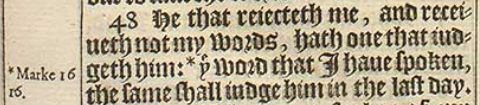 48 He that reiecteth me, and recei-
ueth not my words, hath one that iud-
geth him:* yͤ word that I haue ſpoken,
the ſame ſhall iudge him in the laſt day.
*Marke 16
16.